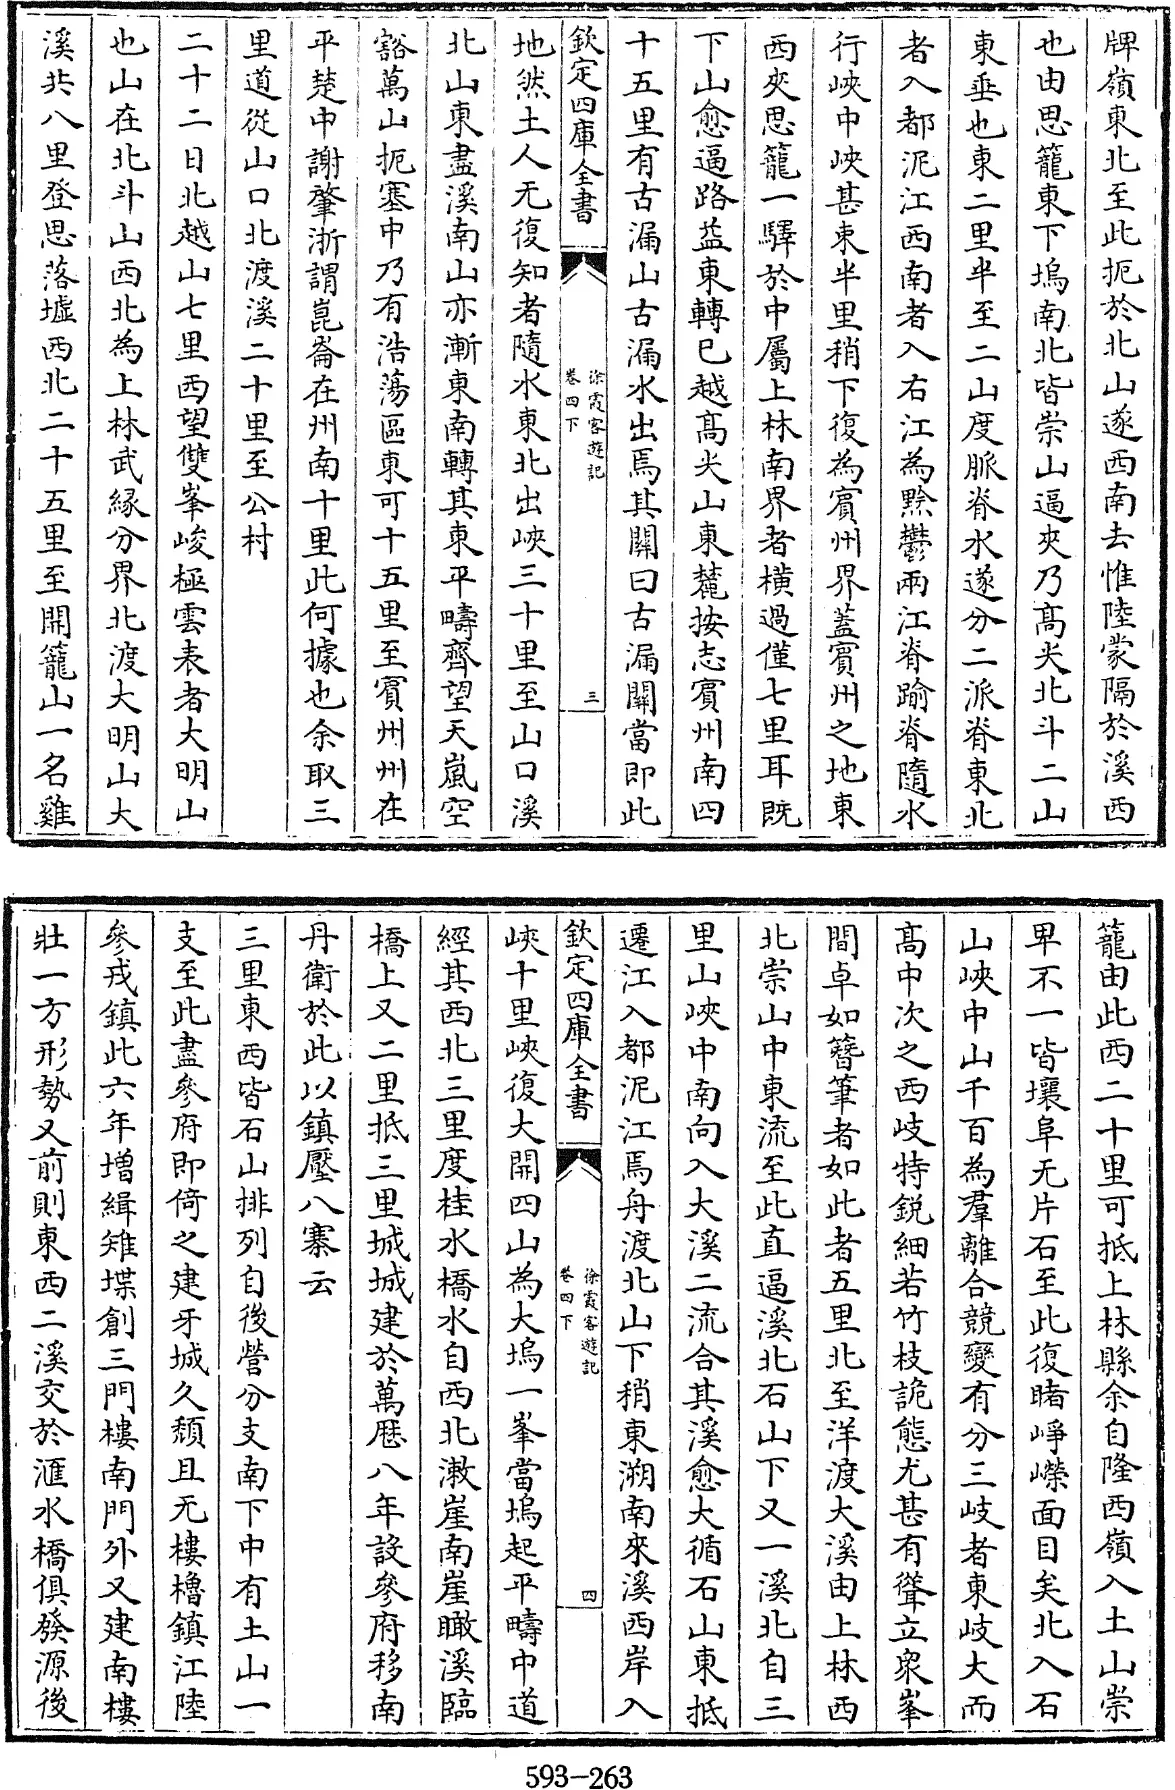 牌嶺東北至此扼於北山遂西南去惟陸蒙隔於溪西
也由思籠東下塢南北皆崇山逼夾乃髙尖北斗二山
東垂也東二里半至二山度脈脊水遂分二派脊東北
者入都泥江西南者入右江為黔鬱兩江脊踰脊隨水
行峽中峽甚東半里稍下復為賓州界蓋賓州之地東
西夾思籠一驛於中屬上林南界者横過僅七里耳既
下山愈逼路益東轉已越髙尖山東麓按志賓州南四
十五里有古漏山古漏水出焉其關曰古漏關當即此
欽定四庫全書
徐霞客遊記
卷四下
三
地然土人无復知者隨水東北出峽三十里至山口溪
北山東盡溪南山亦漸東南轉其東平疇齊望天嵐空
豁萬山扼塞中乃有浩蕩區東可十五里至賓州州在
平楚中謝肇浙謂崑崙在州南十里此何據也余取三
里道從山口北渡溪二十里至公村
二十二日北越山七里西望雙峯峻極雲表者大明山
也山在北斗山西北為上林武縁分界北渡大明山大
溪共八里登思落墟西北二十五里至開籠山一名雞
籠由此西二十里可抵上林縣余自隆西嶺入土山崇
早不一皆壤阜无片石至此復睹崢嶸面目矣北入石
山峽中山千百為羣離合競變有分三岐者東岐大而
髙中次之西岐特銳細若竹枝詭態尤甚有聳立衆峯
間卓如簪筆者如此者五里北至洋渡大溪由上林西
北崇山中東流至此直逼溪北石山下又一溪北自三
里山峽中南向入大溪二流合其溪愈大循石山東抵
遷江入都泥江焉舟渡北山下稍東溯南來溪西岸入
欽定四庫全書
徐霞客遊記
卷四下
四
峽十里峽復大開四山為大塢一峯當塢起平疇中道
經其西北三里度桂水橋水自西北漱崖南崖瞰溪臨
橋上又二里抵三里城城建於萬歷八年設參府移南
丹衛於此以鎮壓八寨云
三里東西皆石山排列自後營分支南下中有土山一
支至此盡參府即倚之建牙城久頽且无樓櫓鎮江陸
參戎鎮此六年增緝雉堞創三門樓南門外又建南樓
壯一方形勢又前則東西二溪交於滙水橋俱發源後
593-263